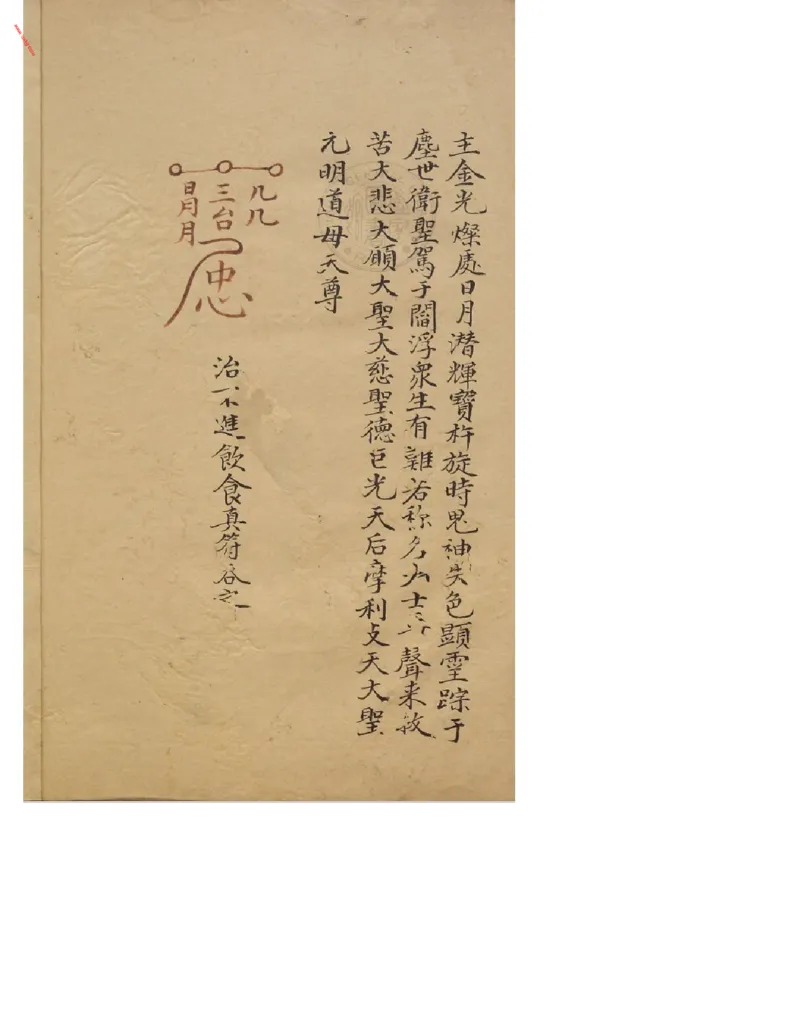 主金光燦處日月潛輝寶杵旋時鬼神失色顯霊踪于
塵世衛聖駕于閻浮衆生有難若称名大士二六聲来救
苦大悲大願大聖大慈聖德巨光天后摩利支天大聖
元明道母天尊
治一不進飲食真符吞之
三台
日月月
忠